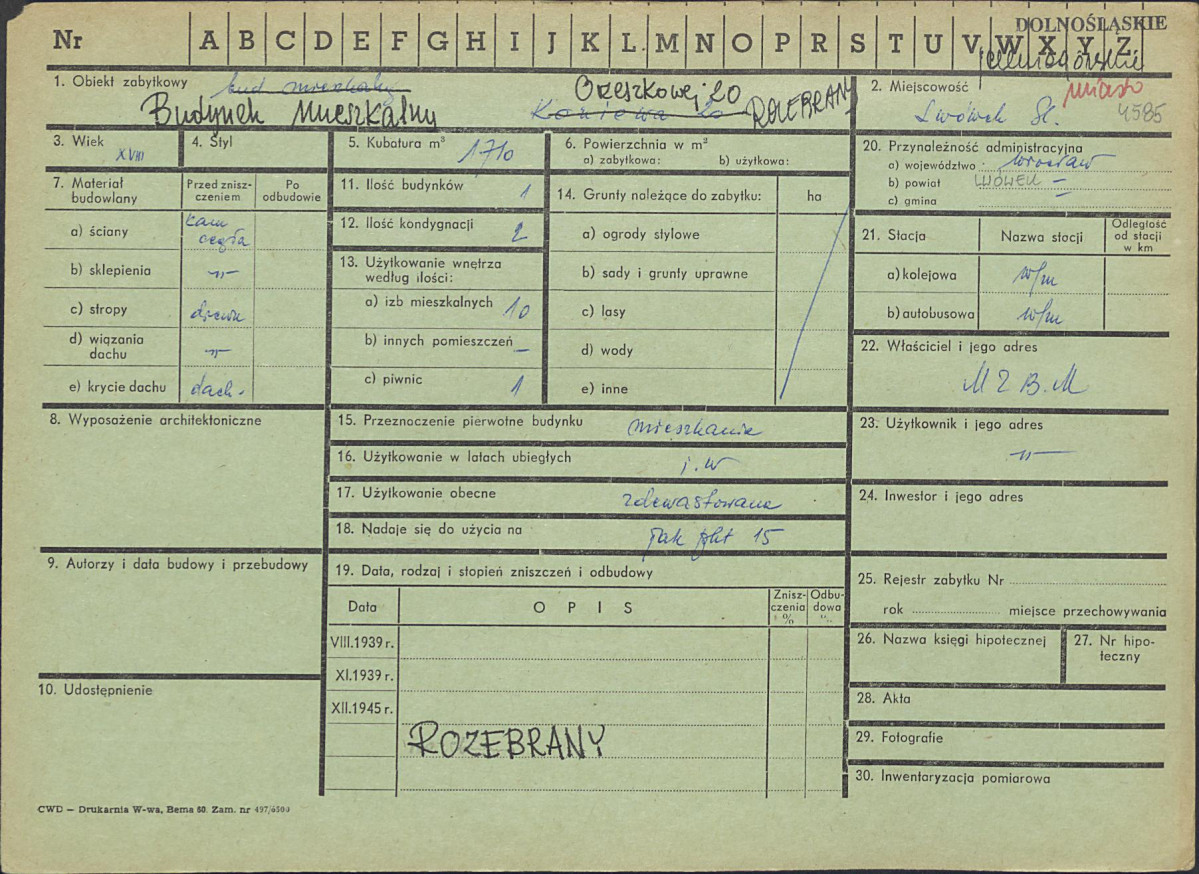 DOLNOŚLĄSKIE
Nr A B C D E F G H I J K L M N O P R S T U V W X Y Z
jeleniogórskie
1. Obiekt zabytkowy bud mieszkalny Orzeszkowej 20
Budynek Mieszkalny ROZEBRANY
2. Miejscowość miasto
Lwówek Śl. 4585
3. Wiek XVIII
4. Styl
5. Kubatura m³ 1710
6. Powierzchnia w m²
a) zabytkowa: b) użytkowa:
7. Materiał budowlany
Przed zniszczeniem
Po odbudowie
a) ściany kam cegła
b) sklepienia -„-
c) stropy drewn
d) wiązania dachu -„-
e) krycie dachu dach.
8. Wyposażenie architektoniczne
9. Autorzy i data budowy i przebudowy
10. Udostępnienie
11. Ilość budynków 1
12. Ilość kondygnacji 2
13. Użytkowanie wnętrza
według ilości:
a) izb mieszkalnych 10
b) innych pomieszczeń –
c) piwnic 1
14. Grunty należące do zabytku: ha
a) ogrody stylowe
b) sady i grunty uprawne
c) lasy
d) wody
e) inne
15. Przeznaczenie pierwotne budynku mieszkanie
16. Użytkowanie w latach ubiegłych j.w
17. Użytkowanie obecne zdewastowane
18. Nadaje się do użycia na jak pkt 15
19. Data, rodzaj i stopień zniszczeń i odbudowy
Data OPIS Zniszczenia % Odbudowa %
VIII.1939 r.
XI.1939 r.
XII.1945 r.
ROZEBRANY
20. Przynależność administracyjna
a) województwo wrocław
b) powiat LWÓWEK –
c) gmina –
21. Stacja Nazwa stacji Odległość od stacji w km
a) kolejowa w/m
b) autobusowa w/m
22. Właściciel i jego adres
M Z B. M
23. Użytkownik i jego adres
-„-
24. Inwestor i jego adres
25. Rejestr zabytku Nr
rok miejsce przechowywania
26. Nazwa księgi hipotecznej
27. Nr hipoteczny
28. Akta
29. Fotografie
30. Inwentaryzacja pomiarowa
CWD – Drukarnia W-wa, Bema 60. Zam. nr 497/6500